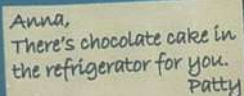 Anna,
There's chocolate cake in
the refrigerator for you.
Patty